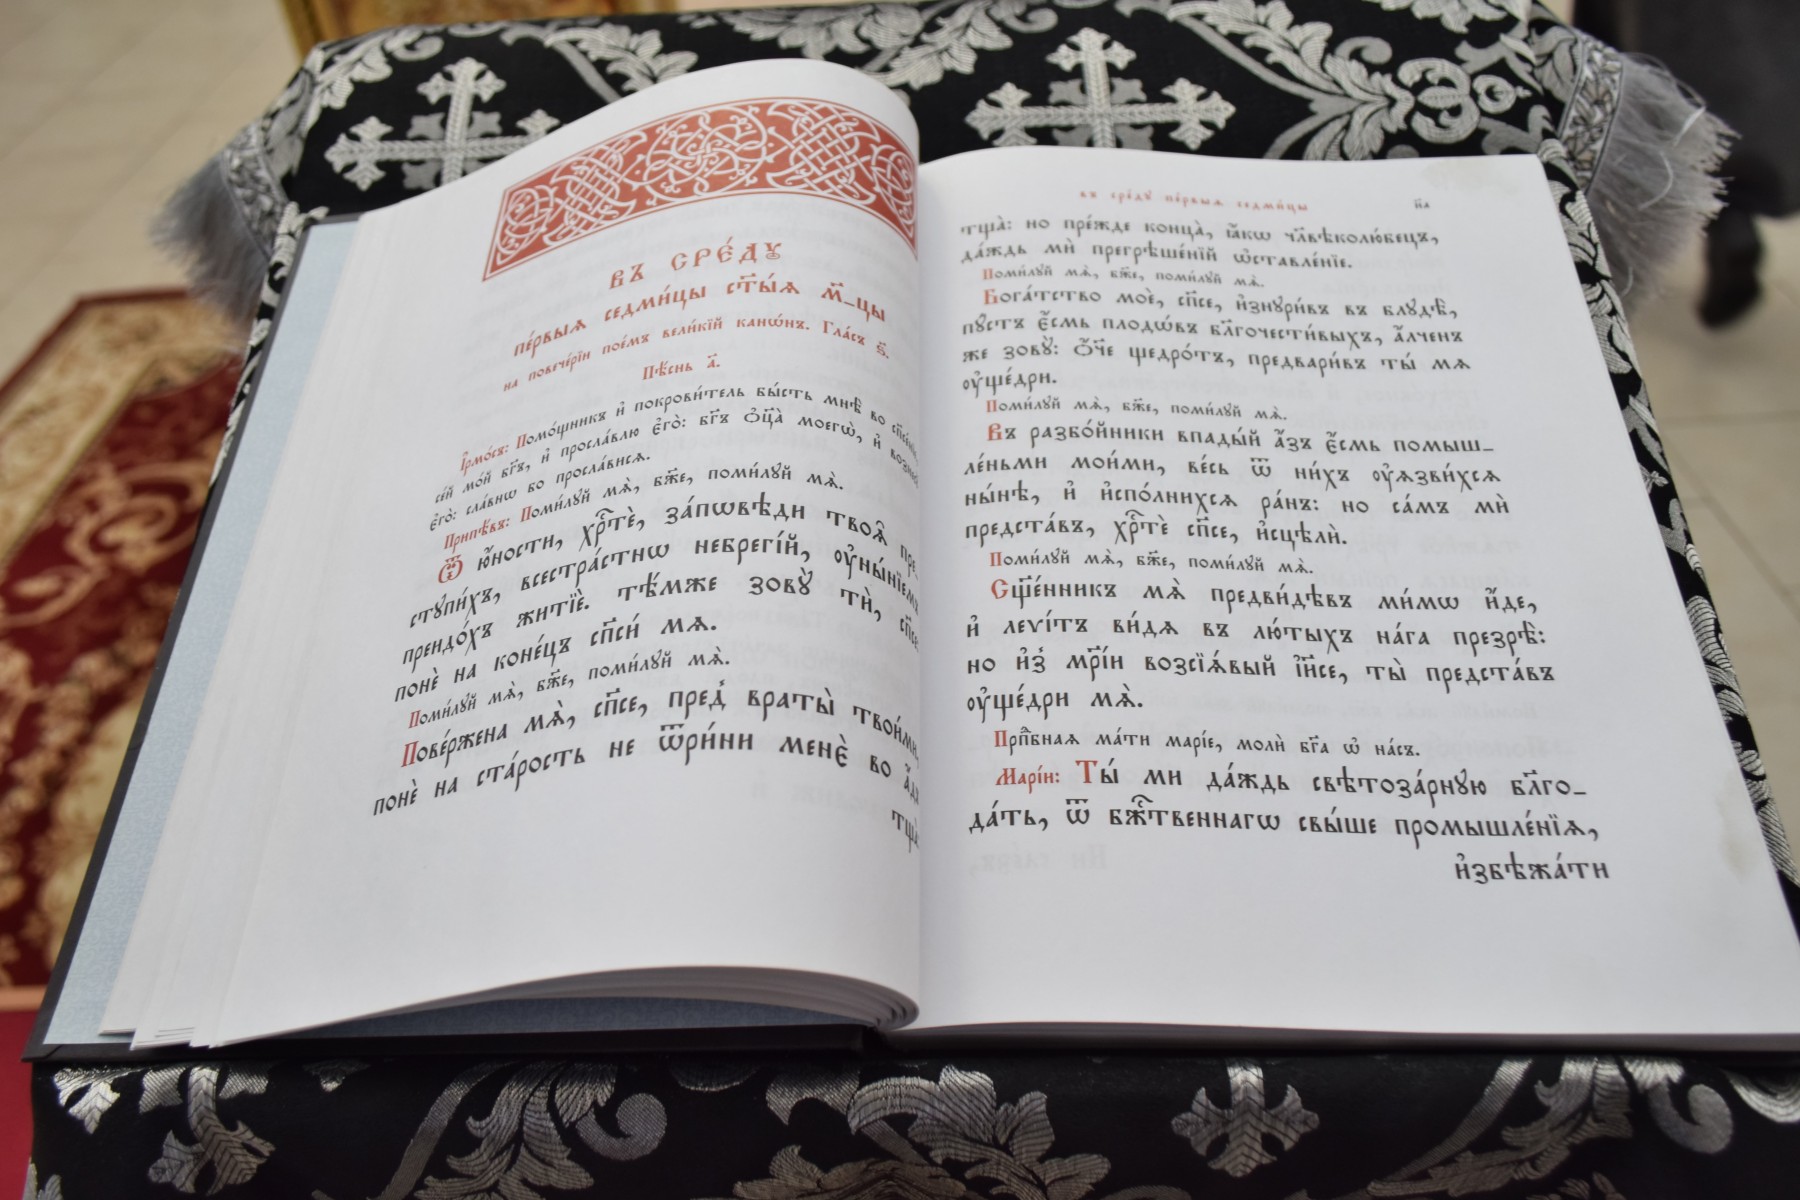 въ сре́дꙋ
пе́рвыѧ седми́цы ст҃ы́ѧ м҃_цы
на повече́рїи пое́мъ вели́кїй канѡ́нъ. Гла́съ ѕ҃.
Пѣ́снь а҃.
І҆рмо́съ: Помо́щникъ и҆ покрови́тель бы́сть мнѣ̀ во сп҃се́нїе,
се́й мо́й бг҃ъ, и҆ просла́влю є҆го̀: бг҃ъ ѻ҆ц҃а̀ моегѡ̀, и҆
є҆го̀: сла́внѡ во просла́висѧ.
Припѣ́въ: Поми́лꙋй мѧ̀, бж҃е, поми́лꙋй мѧ̀.
Ѿ ю҆́ности, хрⷭ҇тѐ, за́пѡвѣди твоѧ̑ пре_
стꙋпи́хъ, всестра́стнѡ небрегі́й, ᲂу҆ны́нїемъ
преидо́хъ житїѐ. тѣ́мже зовꙋ̀ тѝ, сп҃се:
понѐ на коне́цъ сп҃си́ мѧ.
Поми́лꙋй мѧ̀, бж҃е, поми́лꙋй мѧ̀.
Пове́ржена мѧ̀, сп҃се, пред̾ враты̀ твои́ми,
понѐ на ста́рость не ѿри́ни менѐ во а҆́дъ
тщ҃а̀:
въ сре́дꙋ пе́рвыѧ седми́цы
н҃а
тща̀: но пре́жде конца̀, ꙗ҆́кѡ чл҃вѣколю́бецъ,
да́ждь мѝ прегрѣше́нїй ѡ҆ставле́нїе.
Поми́лꙋй мѧ̀, бж҃е, поми́лꙋй мѧ̀.
Бога́тство моѐ, сп҃се, и҆знꙋри́въ въ блꙋдѣ̀,
пꙋстъ є҆́смь плодѡ́въ бл҃гочести́выхъ, а҆́лченъ
же зовꙋ̀: ѻ҆́ч҃е щедро́тъ, предвари́въ ты́ мѧ
ᲂу҆ще́дри.
Поми́лꙋй мѧ̀, бж҃е, поми́лꙋй мѧ̀.
Въ разбо́йники впады́й а҆́зъ є҆́смь помыш_
ле́ньми мои́ми, ве́сь ѿ ни́хъ ᲂу҆ѧзви́хсѧ
ны́нѣ, и҆ и҆спо́лнихсѧ ра́нъ: но са́мъ мѝ
предста́въ, хрⷭ҇тѐ сп҃се, и҆сцѣлѝ.
Поми́лꙋй мѧ̀, бж҃е, поми́лꙋй мѧ̀.
Сщ҃е́нникъ мѧ̀ предви́дѣвъ ми́мѡ и҆́де,
и҆ леѵі́тъ ви́дѧ въ лю́тыхъ на́га презрѣ̀:
но и҆з̾ мр҃і́и возсїѧ́вый і҆и҃се, ты̀ предста́въ
ᲂу҆ще́дри мѧ̀.
Прп҃бнаѧ ма́ти марі́е, молѝ бг҃а ѡ҆ на́съ.
Марі́и: Ты́ ми да́ждь свѣтоза́рнꙋю бл҃го_
да́ть, ѿ бжⷭ҇твеннагѡ свы́ше промышле́нїѧ,
и҆збѣжа́ти